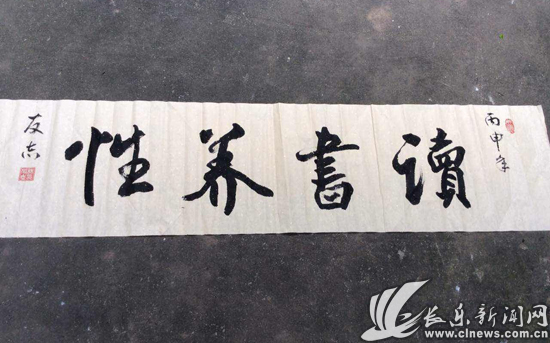 丙申年
讀書养性
友志
长乐新闻网
www.clnews.com.cn